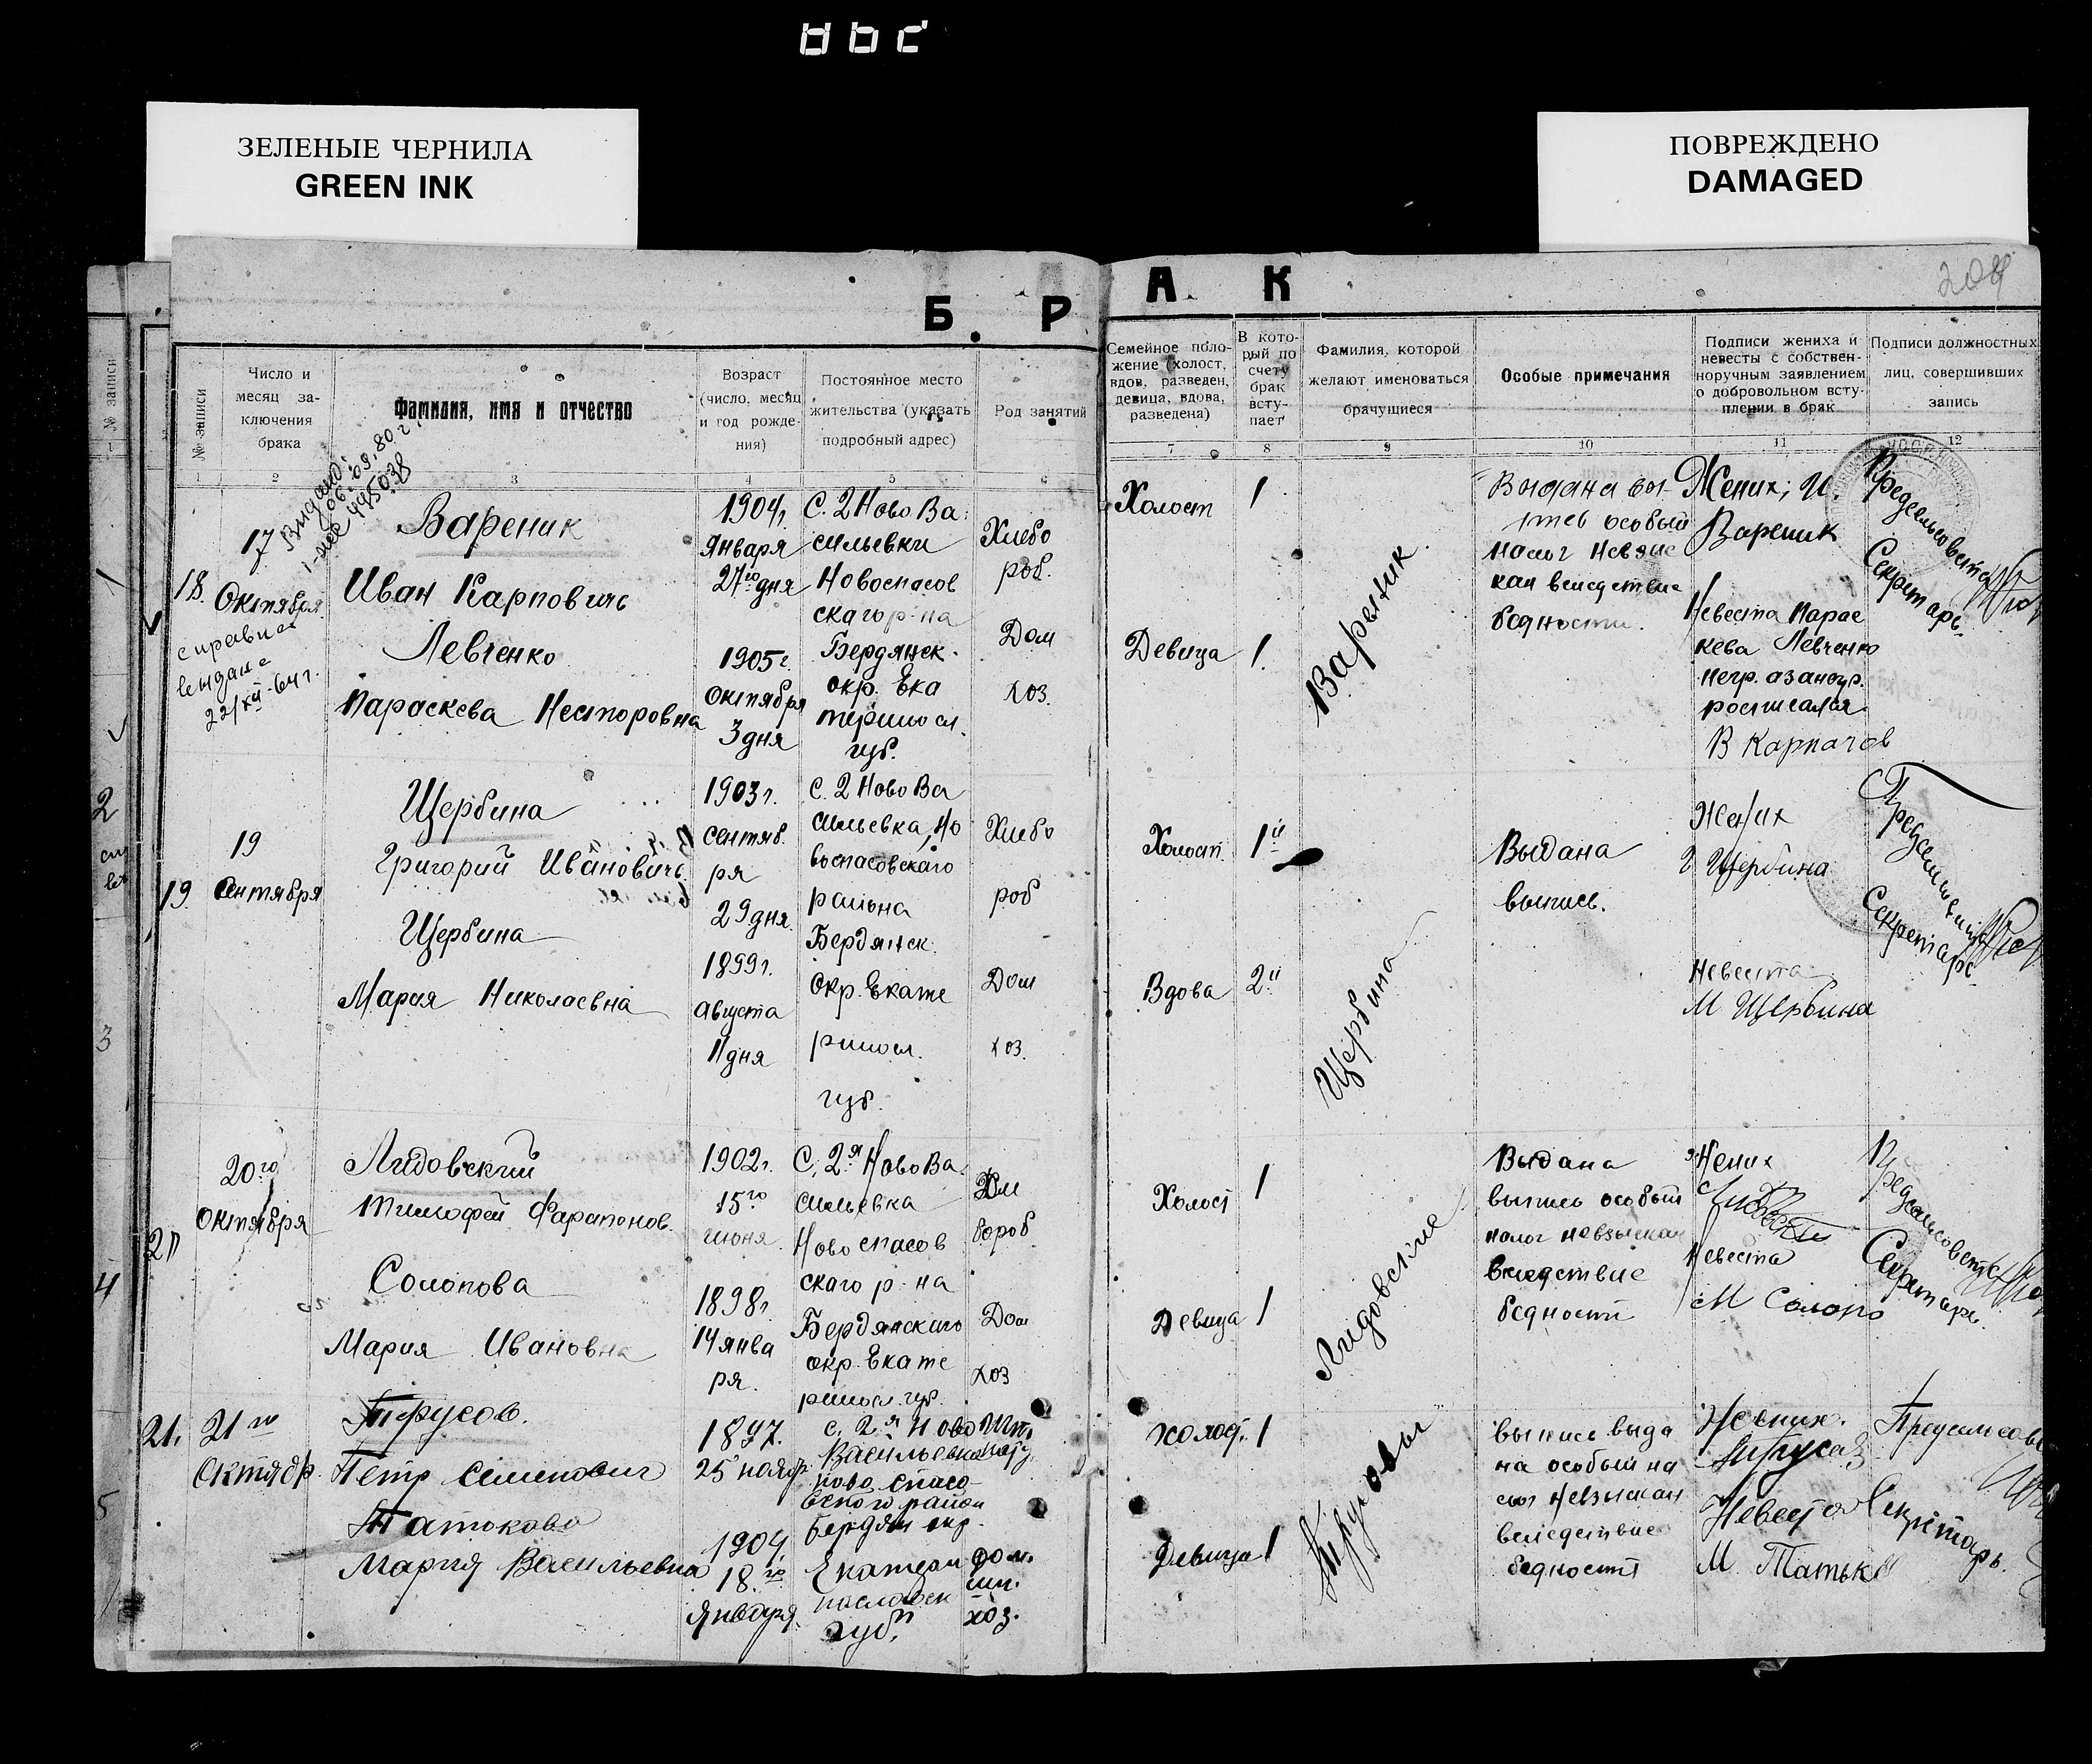 ЗЕЛЕНЫЕ ЧЕРНИЛА
GREEN INK
ПОВРЕЖДЕНО
DAMAGED
БРАК
209
№ записи
1
№ записи
Число и месяц заключения брака
Фамилия, имя и отчество
Возраст (число, месяц и год рождения)
Постоянное место жительства (указать подробный адрес)
Род занятий
Семейное положение (холост, вдов, разведен, девица, вдова, разведена)
В который по счету брак вступает
Фамилия, которой желают именоваться брачущиеся
Особые примечания
Подписи жениха и невесты с собственноручным заявлением о добровольном вступлении в брак
Подписи должностных лиц, совершивших запись
1 2 3 4 5 6 7 8 9 10 11 12
Видано
06.09.80 г.
495038
18.
17
Октября
справка
выдана
22/XII-64 г.
Вареник
Иван Карповичь
Левченко
Параскева Несторовна
1904 г.
Января
27го дня
1905 г.
Октября
3 дня
С. 2 Ново Ва
сильевки
Новоспасов
скаго р-на
Бердянск.
окр. Ека
териносл.
губ.
Хлебо
роб.
Дом
хоз.
Холост
1
Девица
1.
Вареник
Выдана вы-
особый
налог невзыс
кан вследствие
бедности.
Жених; И.
Вареник
Невеста Парас
кева Левченко
негр. а за неугр.
росписался
В Карпачов
Предсельсовета
Секретарь
19
19
Сентября
Щербина
Григорий Ивановичь
Щербина
Мария Николаевна
1903 г.
сентяб.
ря
29 дня.
1899 г.
августа
11 дня
с. 2 Ново Ва
сильевка, Но
воспасовскаго
района
Бердянск.
окр. Екате
риносл.
губ.
Хлебо
роб
Дом
хоз.
Холост.
1й
Вдова
2й
Щербина
Выдана
выпись.
Жених
Щербина
Невеста
М Щербина
Предсельсовета
Секретарь
20го
Октября
Лидовский
Тимофей Фарапонов.
Солопова
Мария Ивановна
1902 г.
15го
июня
1898 г.
14 янва
ря.
С. 2я Ново Ва
сильевка
Ново спасов
скаго р-на
Бердянскаго
окр. Екате
риносл. губ.
Дом
хоз
Холост
1
Девица
1
Лидовские
Выдана
выпись особый
налог невзыскан
вследствие
бедности
Жених
Невеста
М Солопо
Предсельсовета
Секретарь.
21.
21го
Октябр.
Трусов.
Петр Семенович
Татькова
Мария Васильевна
1897.
25 ноябр
1904.
18го
Января.
с. 2я Ново
Васильевка
ново спасо
вского район
бердян окр.
Екатери
нославск
губ.
дом.
хоз.
холост.
1
Девица
1
Трусовы
выпись выда
на особый на
лог невзыскан
вследствие
бедности
Жених.
Трусов
Невеста
М. Татьк
Предсельсове
Секретарь.
2
3
4
5